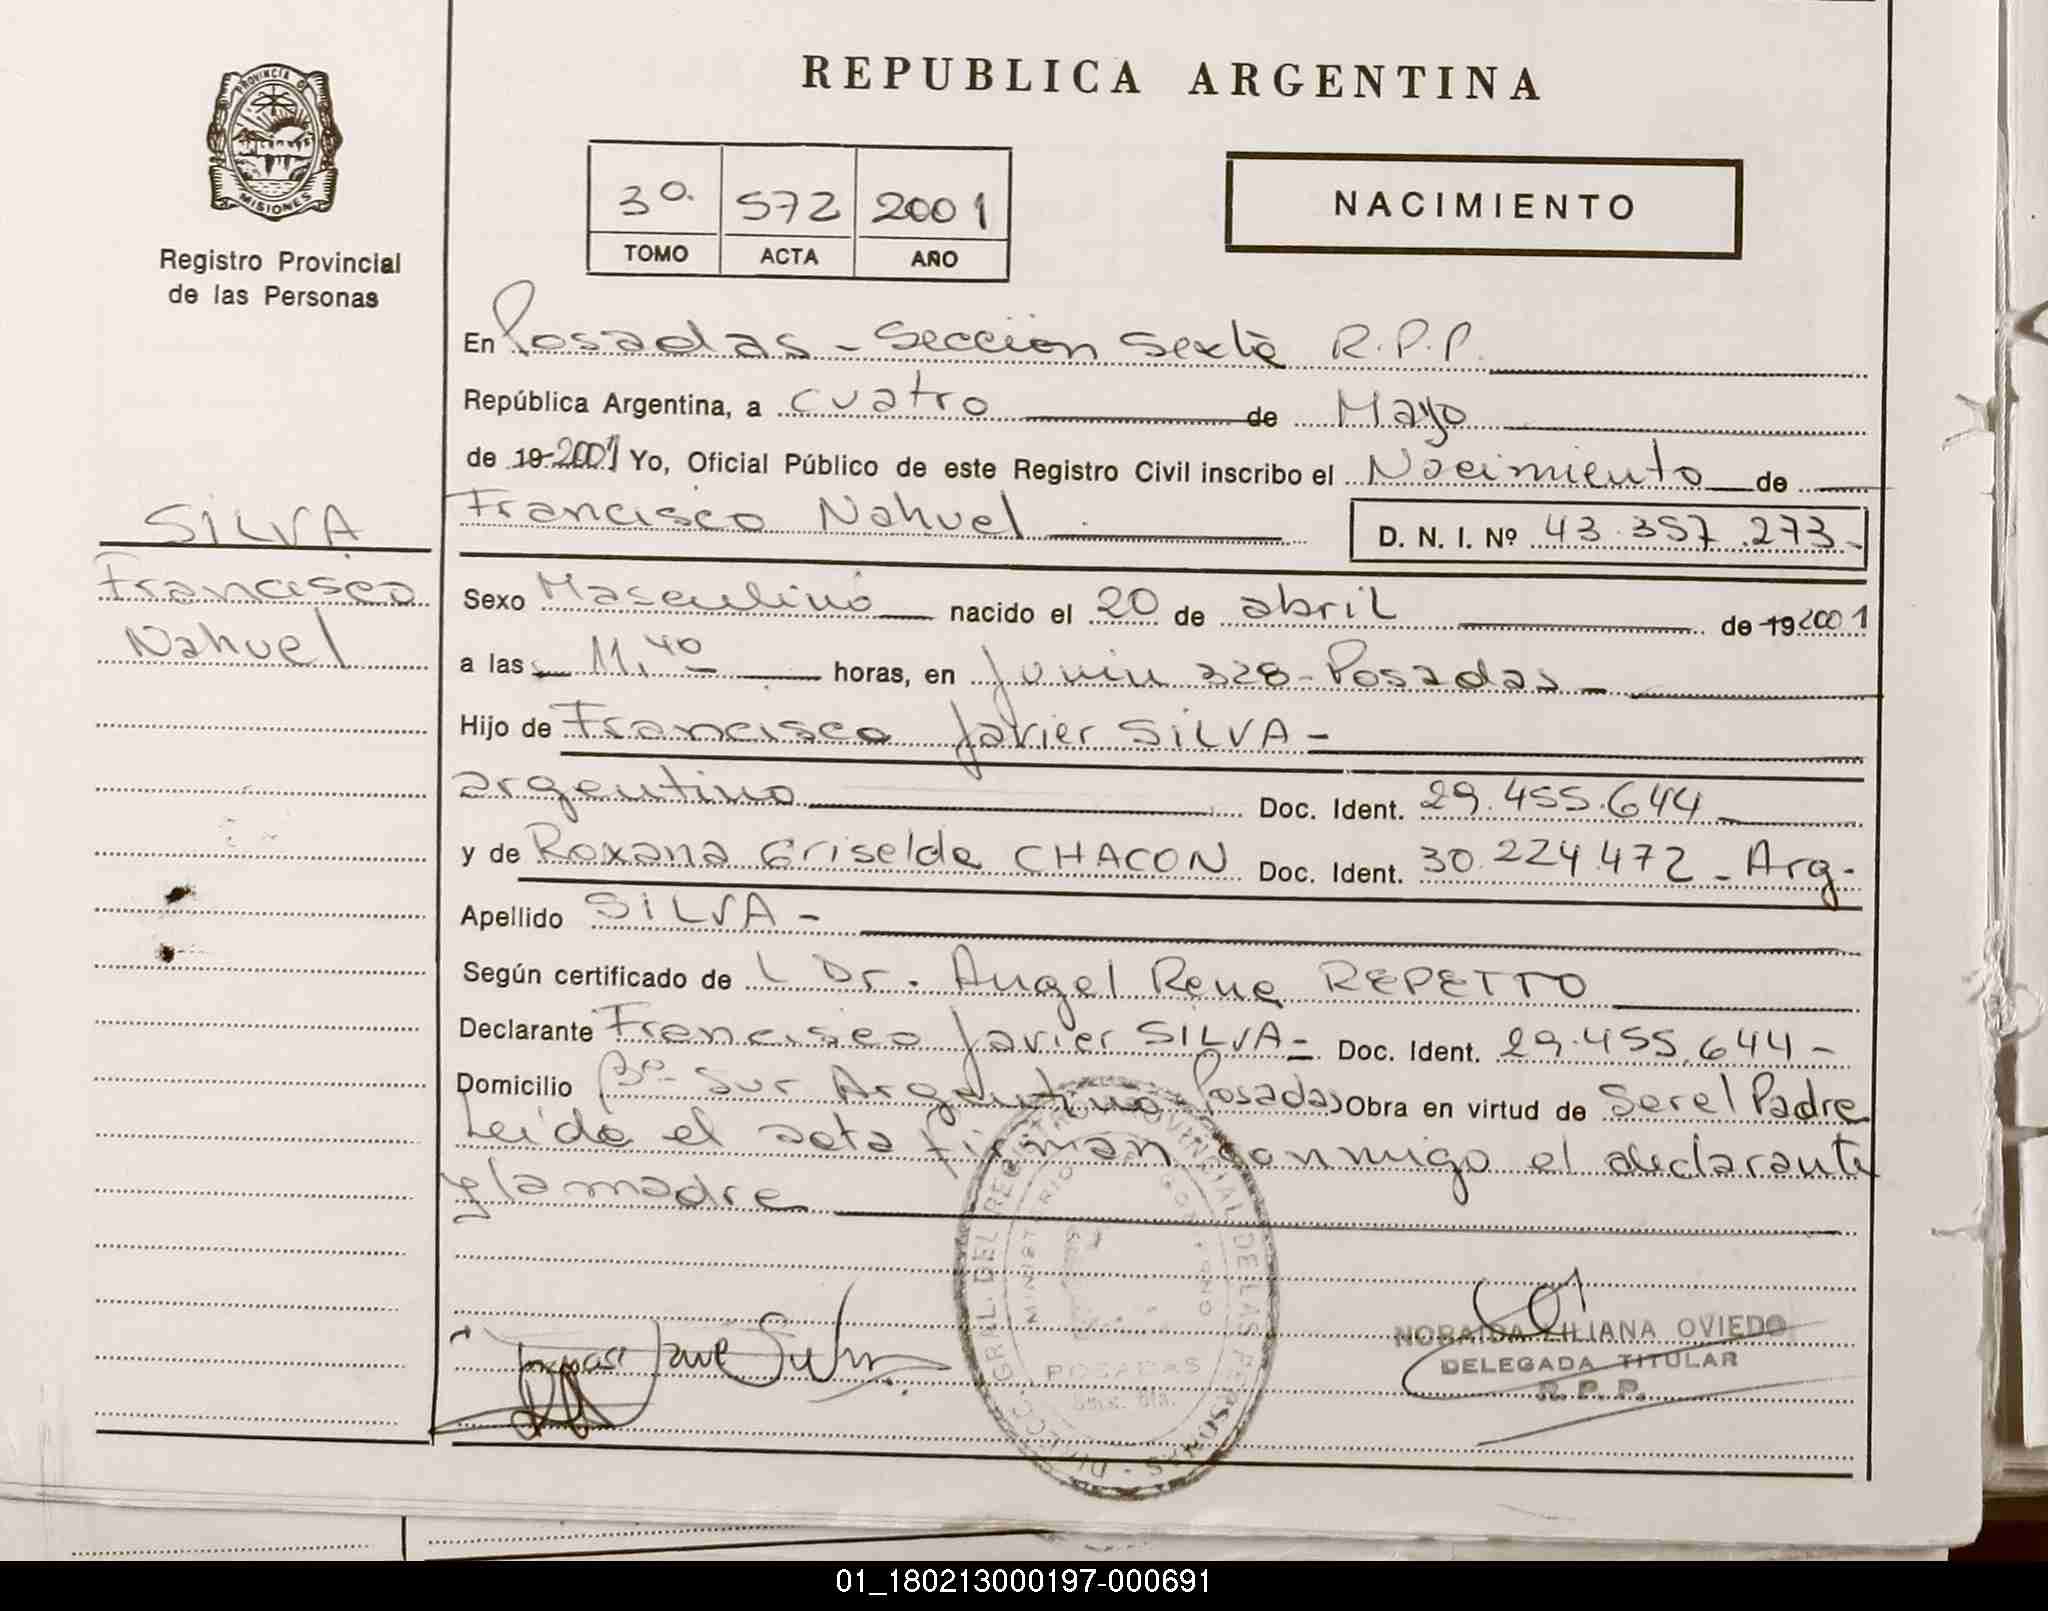 REPUBLICA ARGENTINA
PROVINCIA DE
MISIONES
Registro Provincial
de las Personas
3º. 572 2001
TOMO ACTA AÑO
NACIMIENTO
En Posadas - Seccion Sexta R.P.P.
República Argentina, a cuatro de Mayo
de 19 2001 Yo, Oficial Público de este Registro Civil inscribo el Nacimiento de
Francisco Nahuel D. N. I. Nº 43.357.273-
SILVA
Francisco
Nahuel
Sexo Masculino nacido el 20 de abril de 19 2001
a las 11,40 horas, en Junin 328 - Posadas -
Hijo de Francisco Javier SILVA -
argentino Doc. Ident. 29.455.644
y de Roxana Griselda CHACON Doc. Ident. 30.224.472 - Arg.
Apellido SILVA -
Según certificado de l Dr. Angel Rene REPETTO
Declarante Francisco Javier SILVA - Doc. Ident. 29.455.644 -
Domicilio Bº- Sur Argentino - Posadas Obra en virtud de Ser el Padre
Leida el acta firman conmigo el declarante
y la madre
DIRECC. GRAL. DEL REGISTRO PROVINCIAL DE LAS PERSONAS
MINISTERIO GOBIERNO
POSADAS
NORAIDA LILIANA OVIEDO
DELEGADA TITULAR
R. P. P.
01_180213000197-000691